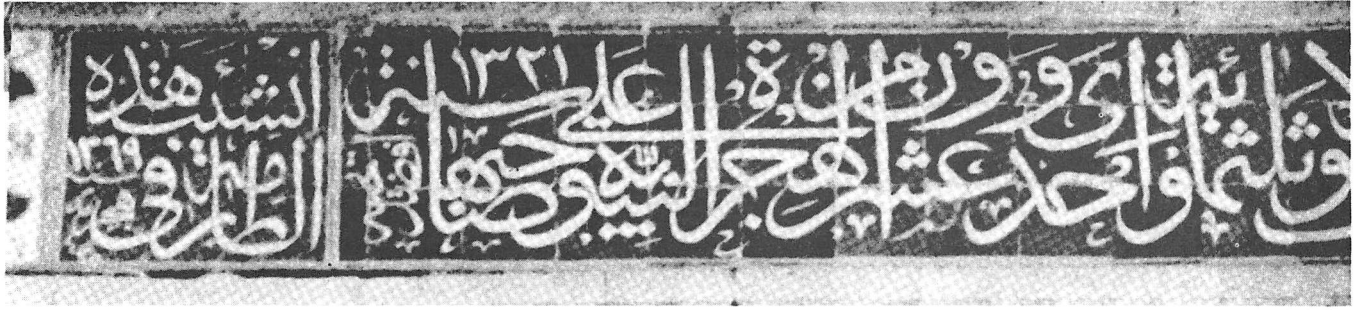 وثلثمائة واحدى وعشر ون من الهجرة النبويه على صاحبها سنة ١٣٢١
انشئت هذه
الطارمة في سنة ١٣٦٩